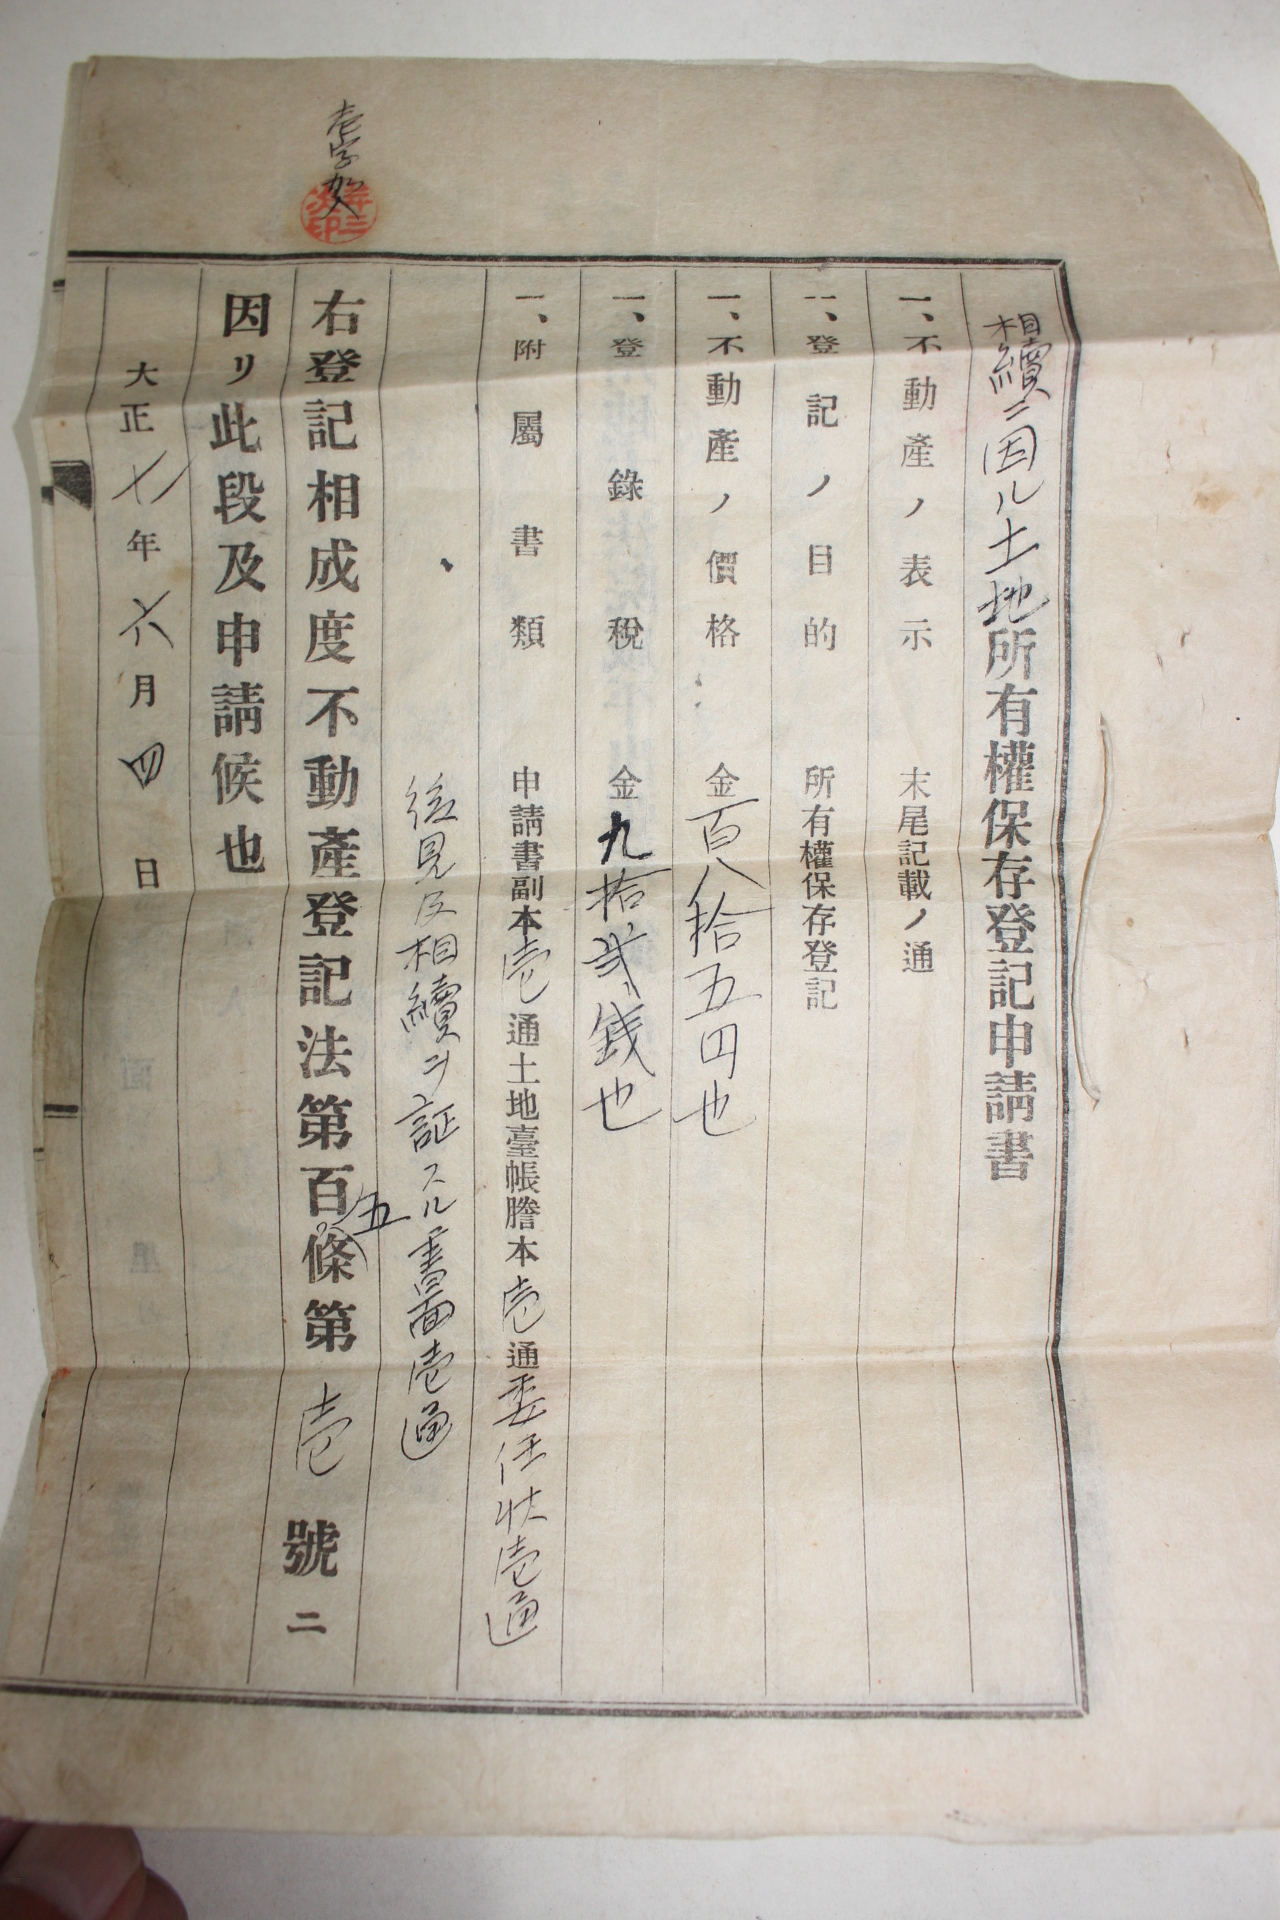 相續ニ因ル土地所有權保存登記申請書
一、不動產ノ表示 末尾記載ノ通
一、登記ノ目的 所有權保存登記
一、不動產ノ價格 金百八拾五円也
一、登錄稅 金九拾弐銭也
一、附屬書類 申請書副本壱通土地臺帳謄本壱通委任状壱通
後見及相續ヲ証スル書面壱通
壱字加入
右登記相成度不動產登記法第百五條第壱號ニ
因リ此段及申請候也
大正八年六月四日